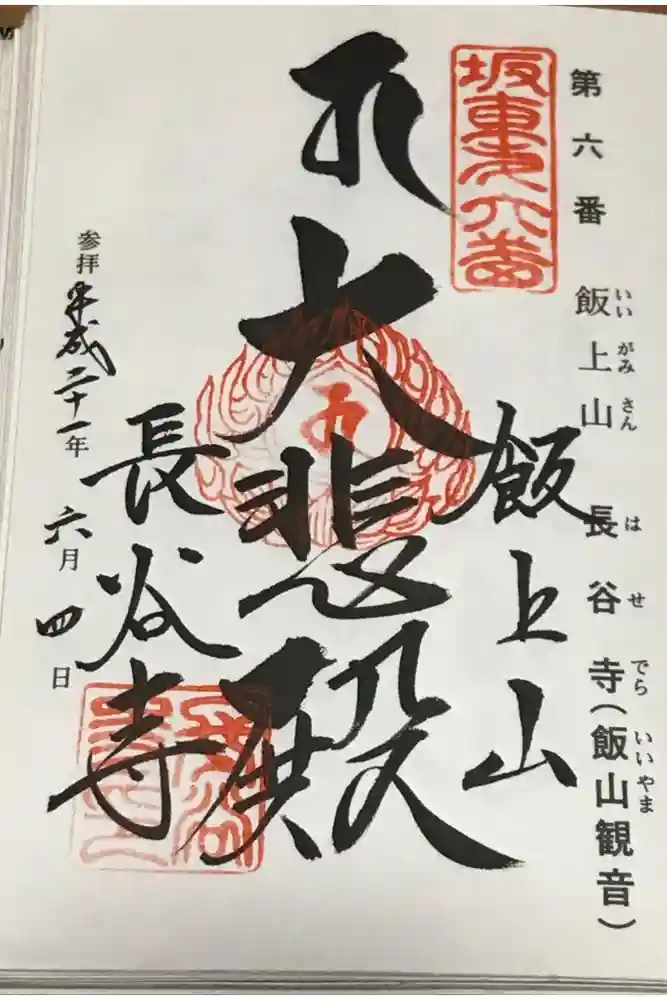 第六番 飯上山 長谷寺(飯山観音)
いいがみさん はせでら いいやま
坂東第六番
飯上山
大悲殿
長谷寺
参拝 平成二十一年 六月四日